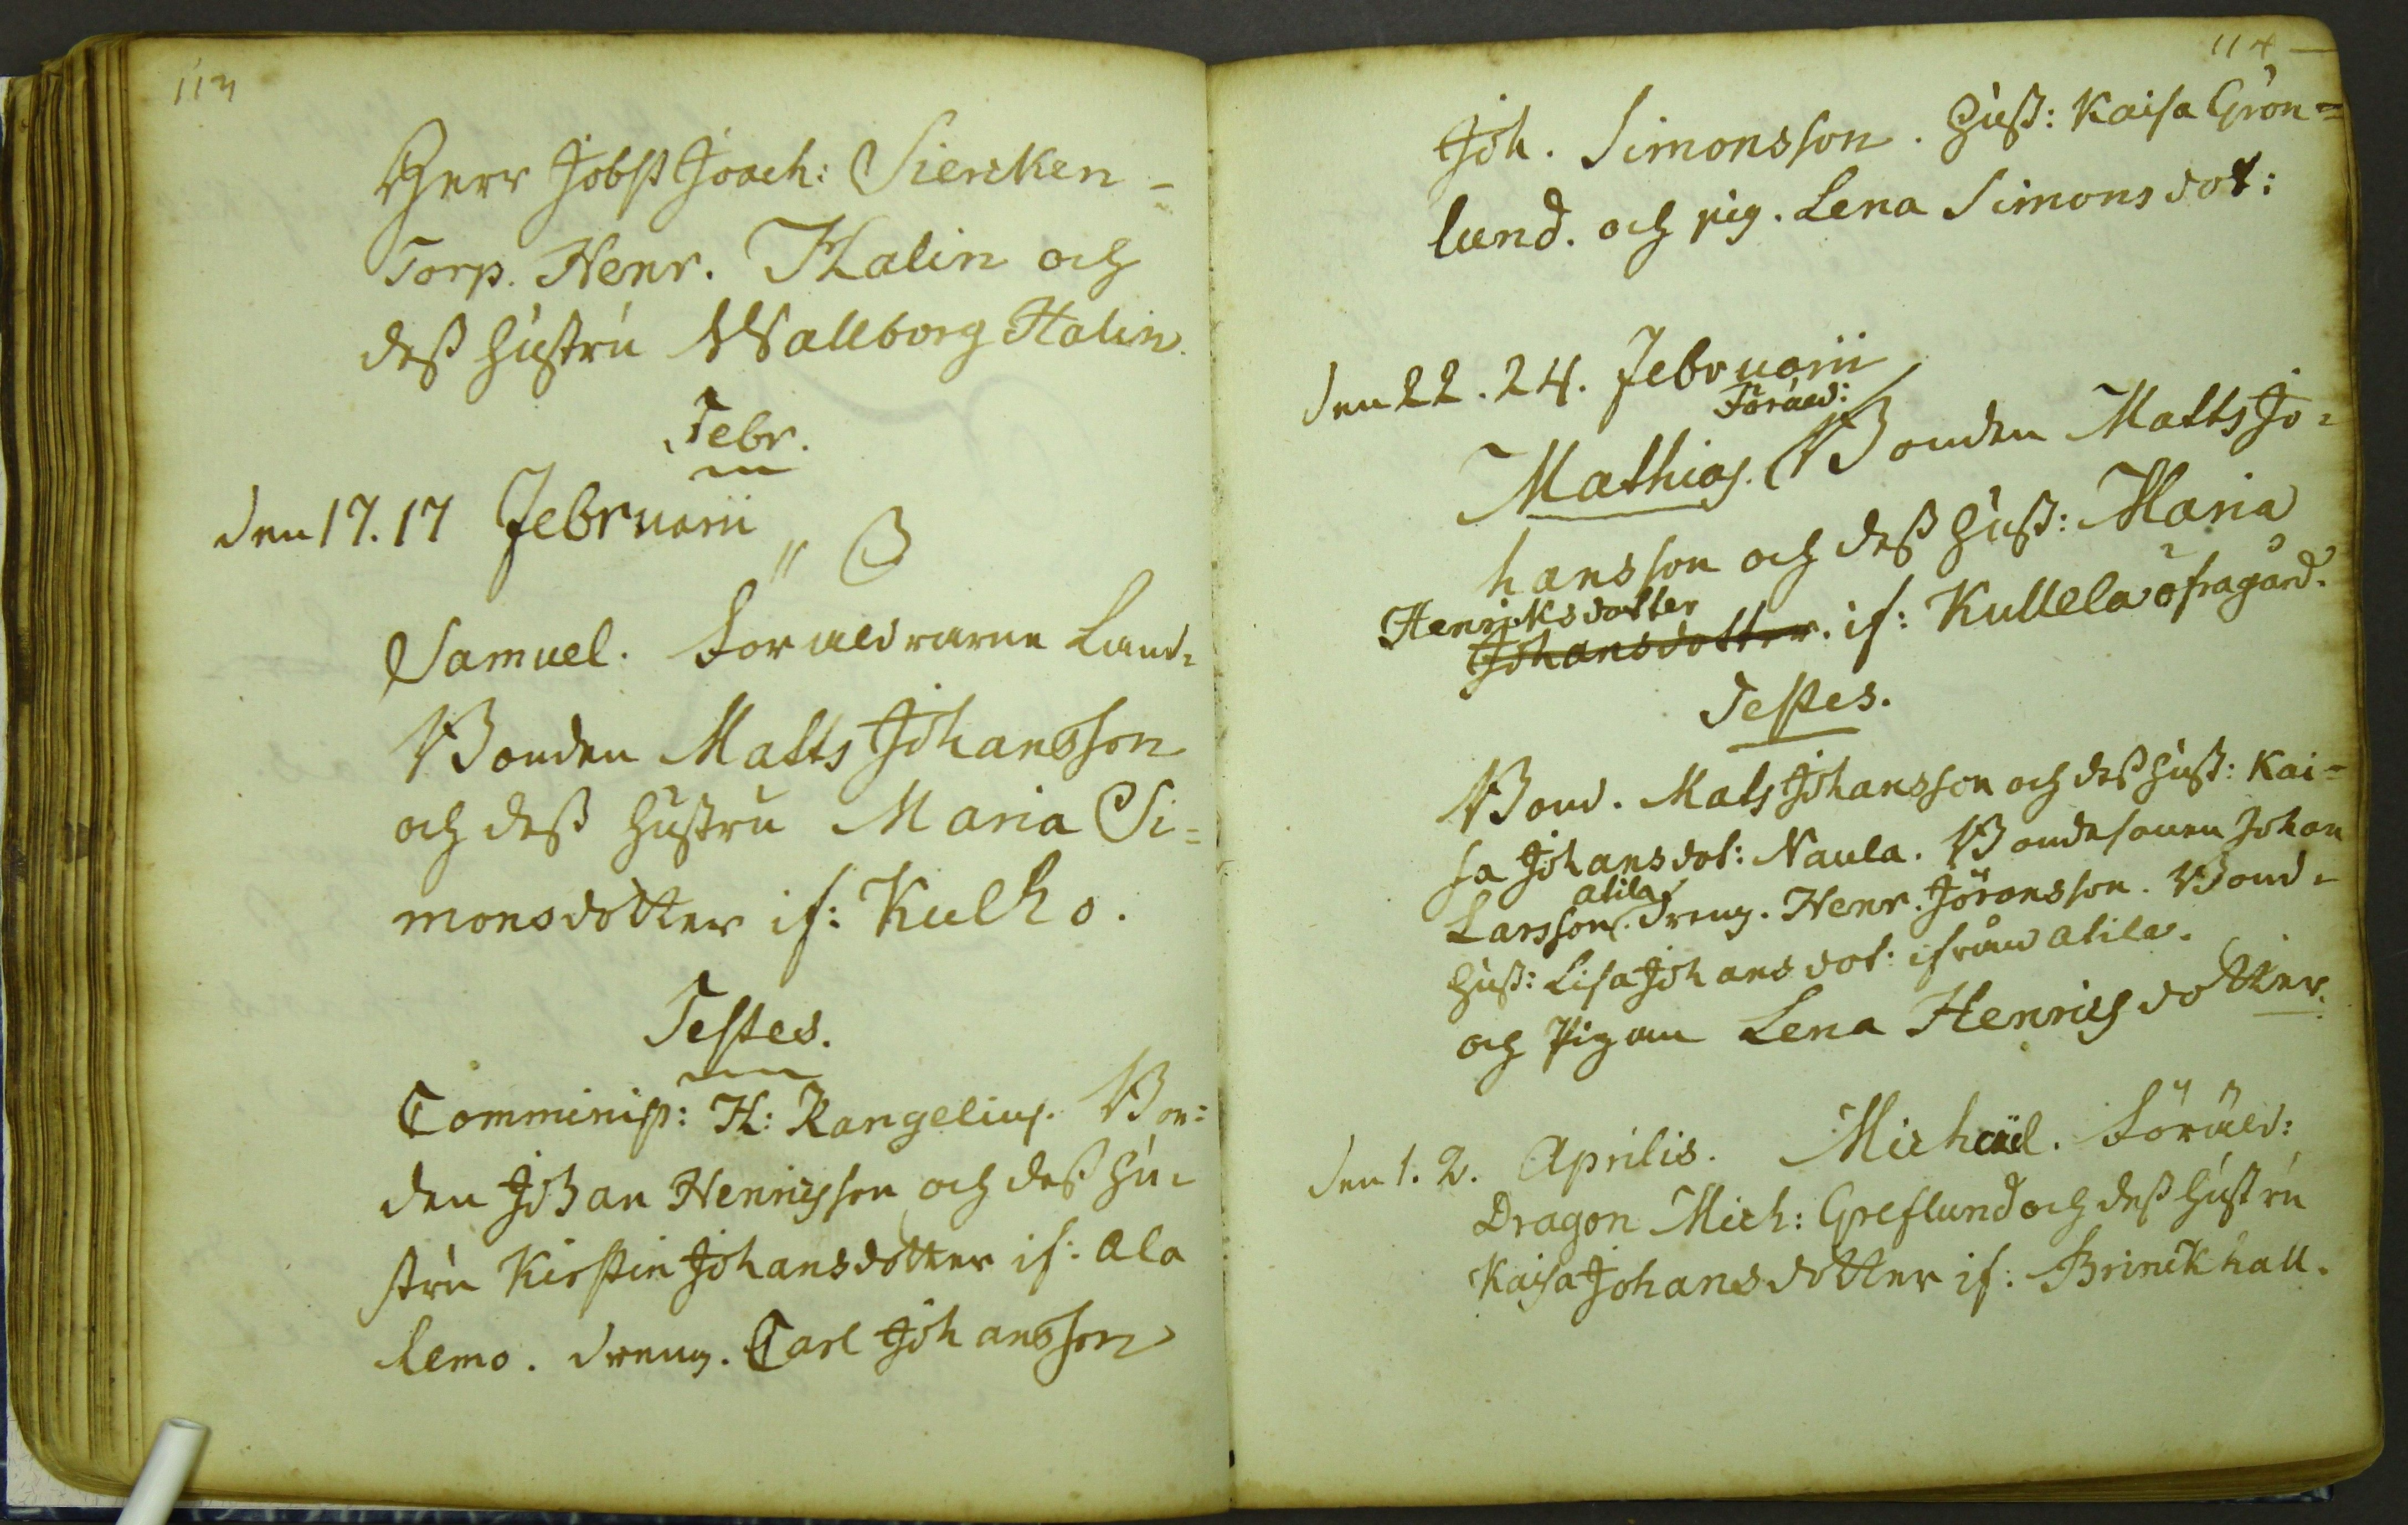 113
Herr Jobst Joach: Siercken-
Torp. Henr. Malin och
dess hustru Wallborg Halin.
Febr.
den 17. 17 Februarii
Samuel. Föräldrarne Land-
Bonden Matts Johansson
och dess hustru Maria Si=
monsdotter if: Kulho.
Testes.
Comminist: H: Rangelius. Bon:
den Johan Henrichsson och dess hu-
stru Kirstin Johansdotter if: Ala
lemo. dreng. Carl Johansson
114
Joh. Simonsson. Hust: Kaisa Grön=
lund. och pig. Lena Simonsdot:
den 22. 24. Februarii
Föräld:
Mathias. Bonden Matts Jo=
hansson och dess Hust: Maria
Henricksdotter
Johansdotter. if: Kullela öfragård.
Testes.
Bond. Mats Johansson och dess hust: Kai=
sa Johansdot: Naula. Bondesonen Johan
atila
Larsson. Dreng. Henr. Jöransson. Bond-
Hust: Lisa Johansdot: ifrån atila.
och Pigan Lena Henrichsdotter.
den 1. 2. Aprilis. Michaël. Föräld:
Dragon Mich: Greflund och dess hustru
Kaisa Johansdotter if: Brinckhall.